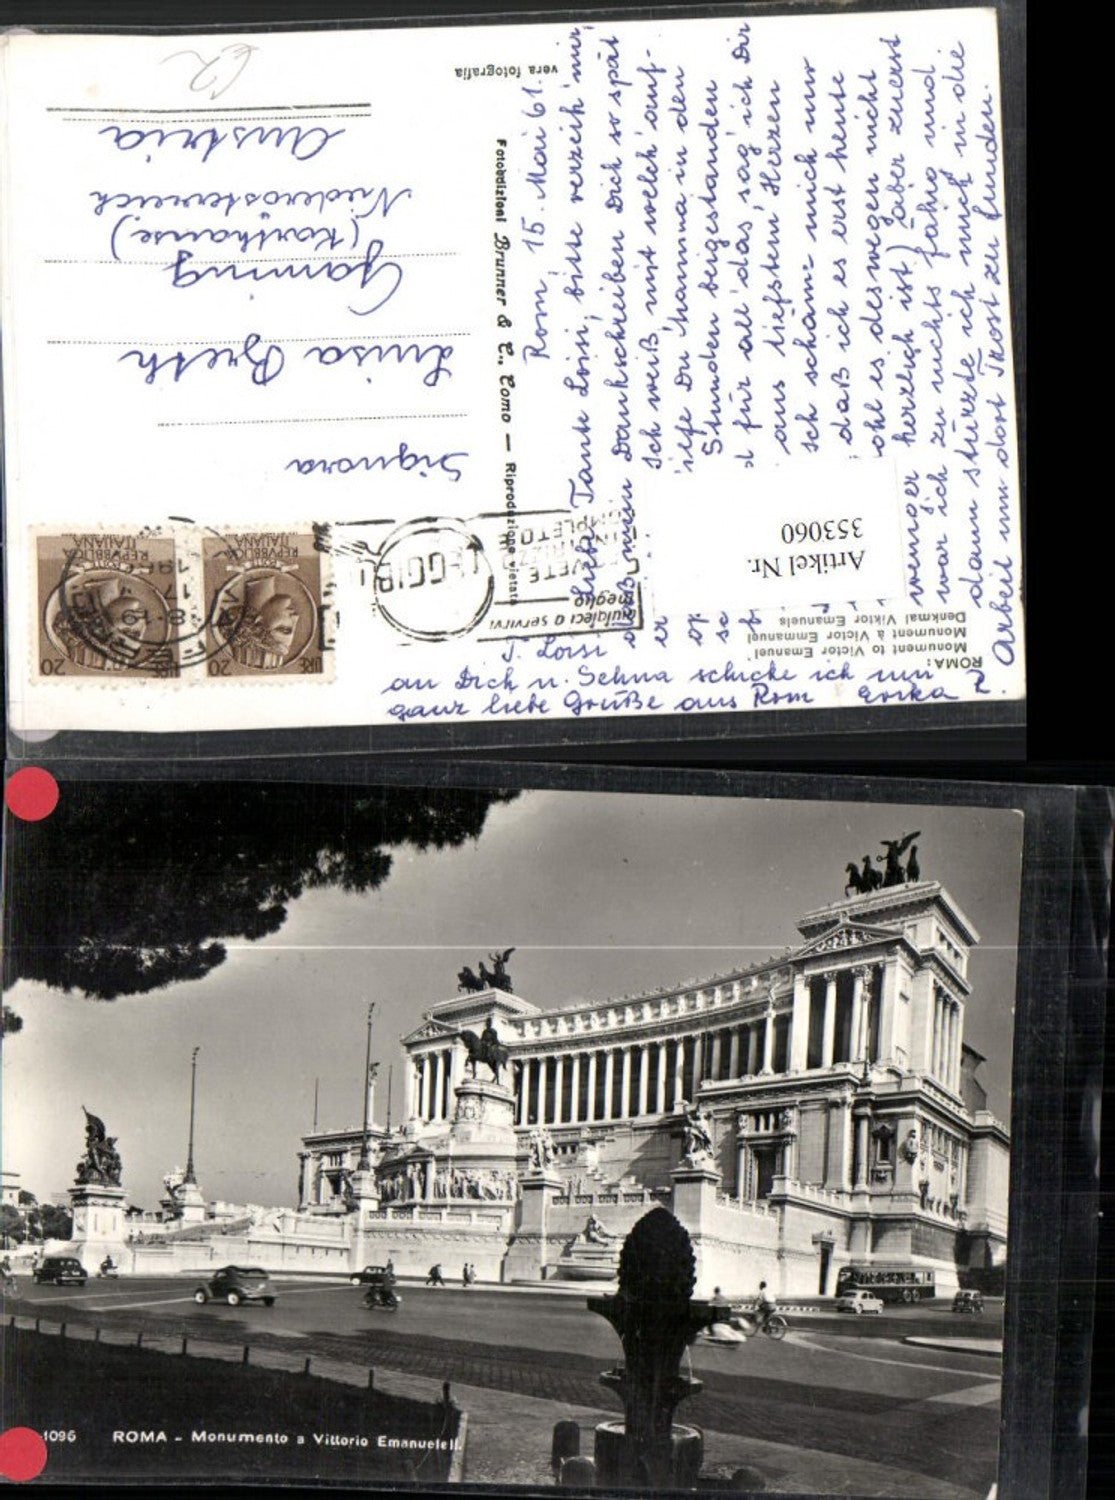 vera fotografia
Fotoedizioni Brunner & C., Como — Riproduzione vietata
Rom, 15. Mai 61.
Liebe Tante Loisi, bitte verzeih mir,
daß mein Dankschreiben Dich so spät
er
Ich weiß mit welch' auf-
op
Du Mamma in den
Stunden beigestanden
für all' das sag' ich Dir
aus tiefstem Herzen
ich schäme mich nur
daß ich es erst heute
ohl es deswegen nicht
weniger herzlich ist) aber zuerst
war ich zu nichts fähig und
dann stürzte ich mich in die
Arbeit um dort Trost zu finden.
T. Loisi
an Dich u. Sehna schicke ich nun
ganz liebe Grüße aus Rom Erika Z.
Signora
Luisa Breth
Gaming
(Karthause)
Niederösterreich
Austria
€2
REPVBBLICA
ITALIANA
POSTE
LIRE 20
REPVBBLICA
ITALIANA
POSTE
LIRE 20
18-19
17
INDIRIZZO
COMPLETO
LEGGIBI
aiutateci a servirvi
meglio
Artikel Nr.
353060
ROMA:
Monument to Victor Emmanuel
Monument à Victor Emmanuel
Denkmal Viktor Emmanuels
1096 ROMA - Monumento a Vittorio Emanuele II.